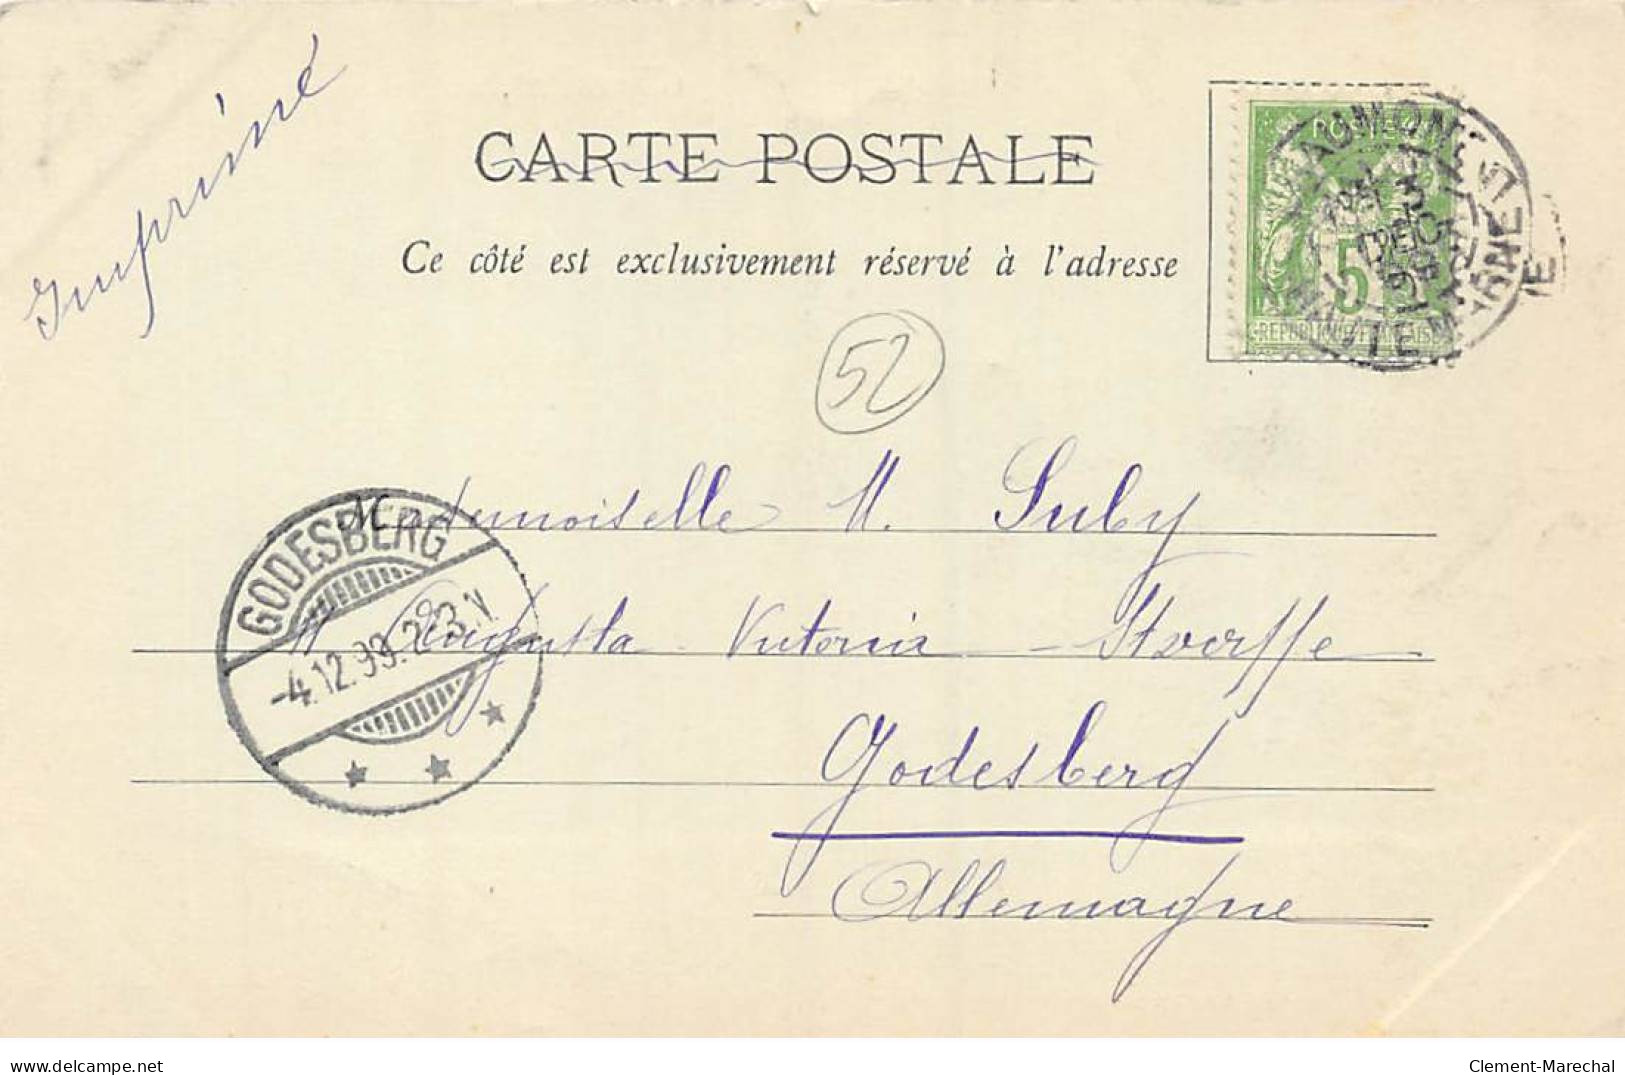 Imprimé
CARTE POSTALE
Ce côté est exclusivement réservé à l'adresse
POSTE
5
REPUBLIQUE FRANÇAISE
CHAUMONT
3
DEC
99
HTE MARNE
52
Mademoiselle M. Suby
Augusta-Victoria-Strasse
Godesberg
Allemagne
GODESBERG
-4.12.99. 2-3.N
delcampe.net
Clement-Marechal